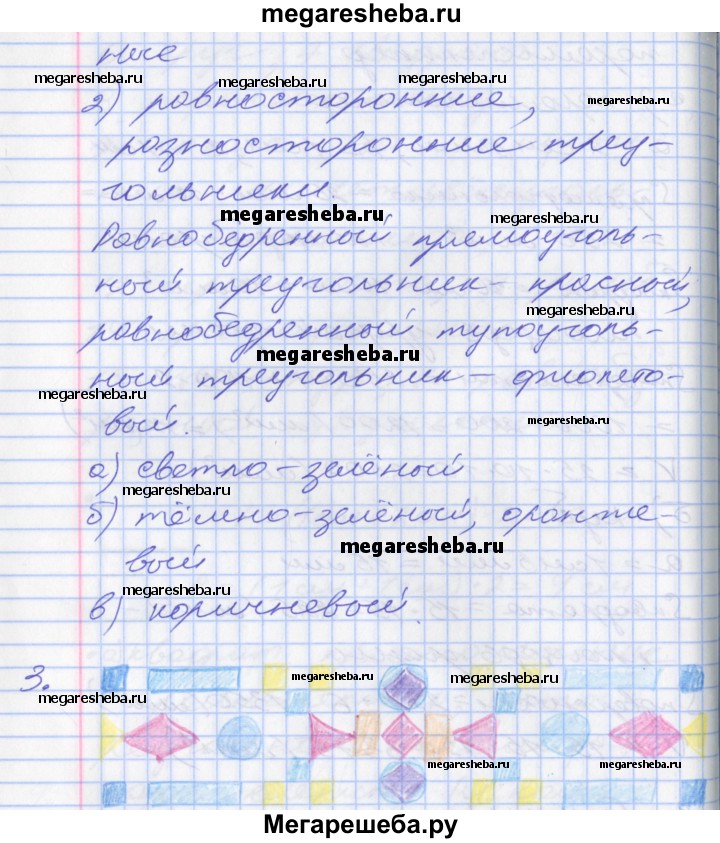 megaresheba.ru
ные
megaresheba.ru megaresheba.ru megaresheba.ru
2) равносторонние,
megaresheba.ru
разносторонние треу-
гольники.
megaresheba.ru megaresheba.ru
Равнобедренный прямоуголь-
ный треугольник - красный,
megaresheba.ru
равнобедренный тупоуголь-
megaresheba.ru
ный треугольник - фиолето-
megaresheba.ru
вый.
megaresheba.ru
а) светло-зелёный
megaresheba.ru
б) тёмно-зелёный, оранже-
megaresheba.ru
вый
megaresheba.ru
в) коричневый.
3.
megaresheba.ru megaresheba.ru
megaresheba.ru
megaresheba.ru megaresheba.ru
Мегарешеба.ру